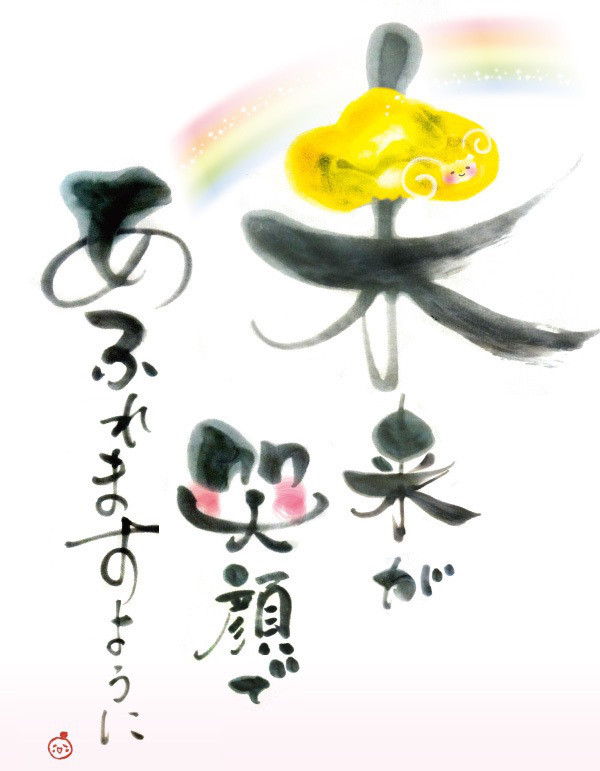 未来が
笑顔で
あふれますように